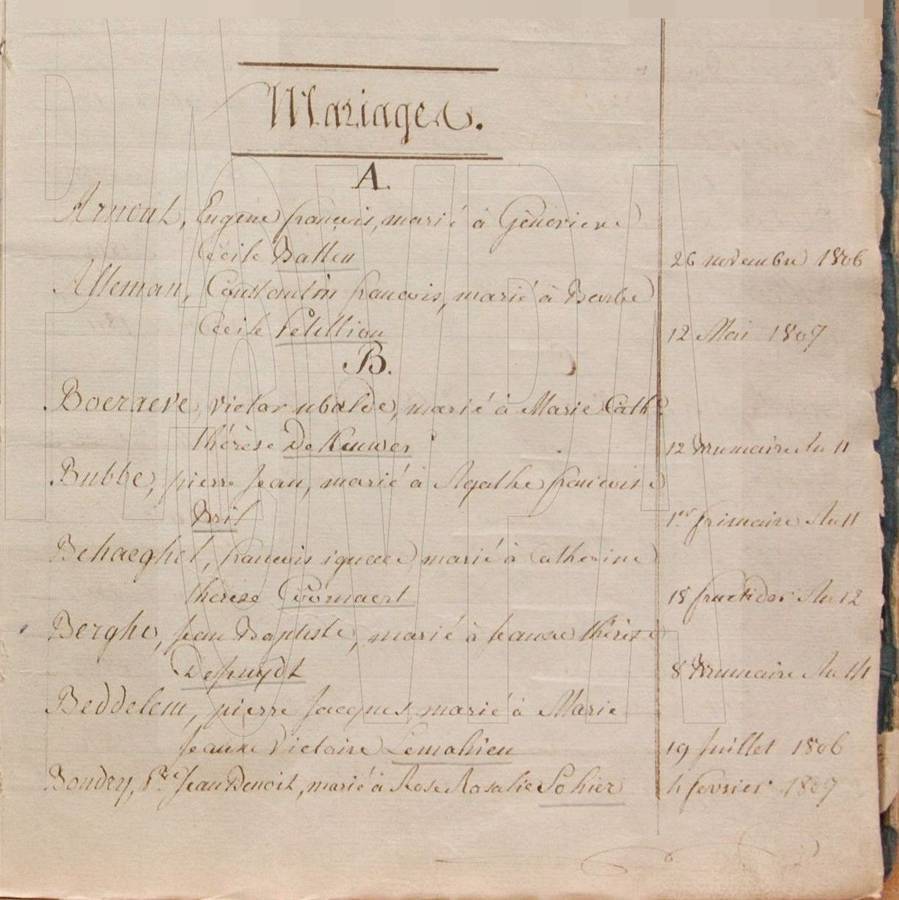 Mariages.
A.
Arnout, Eugène françois, marié à Génévieve
Cécile Batteu 26 novembre 1806
Alleman, Constantin francois, marié à Barbe
Cécile Petillion 12 Mai 1807
B.
Boeraeve, victor ubalde, marié à Marie Cath.e
thérèse De Keuwer 12 Brumaire An 11
Bubbe, pierre Jean, marié à Agathe francoise
Bril 1er frimaire An 11
Behaeghel, francois ignace marié à Catherine
thérèse Coornaert 18 fructidor An 12
Berghe, Jean Baptiste, marié à Jeanne thérèse
Depuydt 8 Brumaire An 14
Beddelem, pierre Jacques, marié à Marie
Jeanne Victoire Lemahieu 19 Juillet 1806
Boudry, P.re Jean Benoit, marié à Rose Rosalie Sohier 4 fevrier 1807